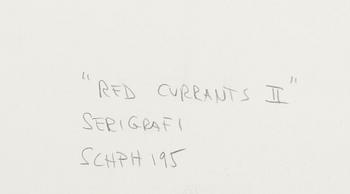 "RED CURRANTS II"
SERIGRAFI
SCHPH 195